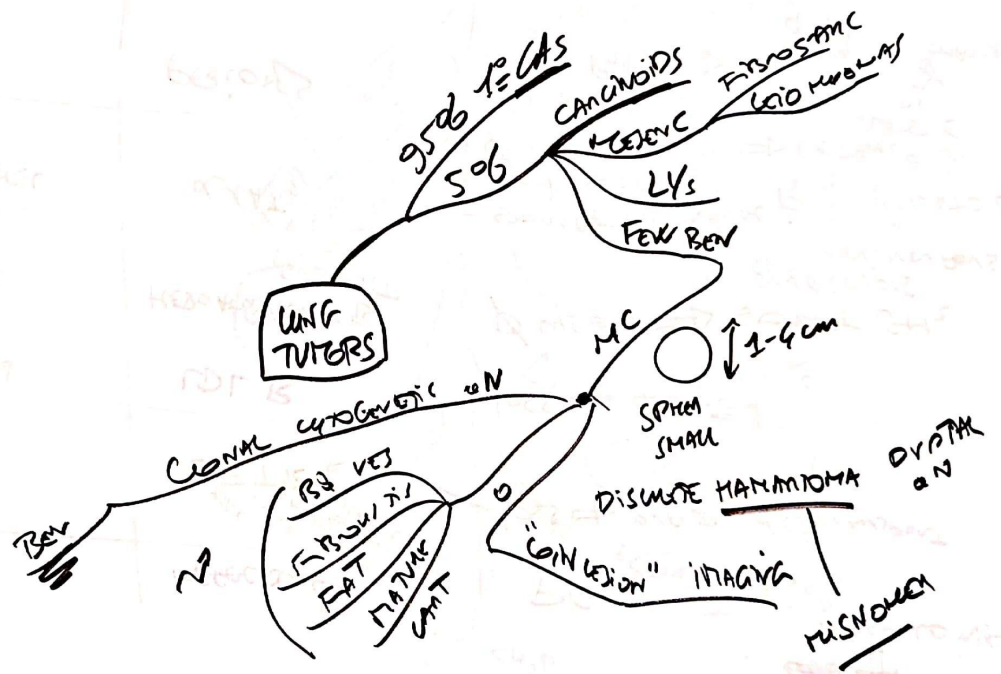 LUNG
TUMORS
95% 1º CAS
5%
CARCINOIDS
MESENC
FIBROSARC
LEIOMYOMAS
LYs
FEW BEN
MC
1-4 cm
SPHER
SMALL
DISCRETE HAMARTOMA
DVPTAL
aN
MISNOMER
"COIN LESION" IMAGING
CLONAL CYTOGENETIC aN
BEN
BQ VES
FIBROUS TIS
FAT
MATURE
CART
N